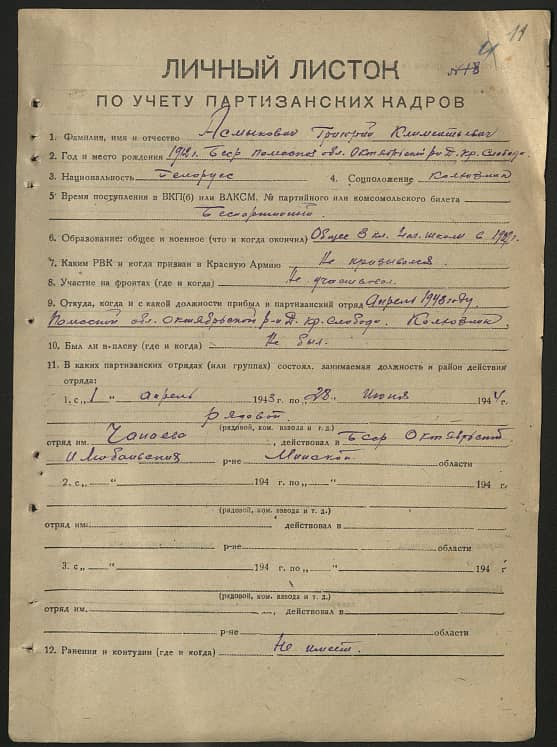 11
№18
ЛИЧНЫЙ ЛИСТОК
ПО УЧЕТУ ПАРТИЗАНСКИХ КАДРОВ
1. Фамилия, имя и отчество Асмыкович Григорий Климентьевич
2. Год и место рождения г. Бсср Полесская обл. Октябрьский р-н Д. Кр. Слобода
3. Национальность Белорус 4. Соцположение Колхозник
5. Время поступления в ВКП(б) или ВЛКСМ, № партийного или комсомольского билета
Беспартийный
6. Образование: общее и военное (что и когда окончил) Общее 3 кл. школы в г.
7. Каким РВК и когда призван в Красную Армию Не призывался.
8. Участие на фронтах (где и когда) Не участвовал.
9. Откуда, когда и с какой должности прибыл в партизанский отряд Апрель 1943 году.
Полесской обл. Октябрьской р-н Д. Кр. Слобода. Колхозник
10. Был ли в плену (где и когда) Не был.
11. В каких партизанских отрядах (или группах) состоял, занимаемая должность и район действия
отряда:
1. с „1“ апрель 1943 г. по „28“ Июня 1944 г.
рядовой
(рядовой, ком. взвода и т. д.)
отряд им. Чапаева, действовал в Бсср Октябрьской
и Любаньский р-не Минской области
2. с „ “ 194 г. по „ “ 194 г.
(рядовой, ком. взвода и т. д.)
отряд им. действовал в
р-не области
3. с „ “ 194 г. по „ “ 194 г
(рядовой, ком. взвода и т. д.)
отряд им. , действовал в
р-не области
12. Ранения и контузии (где и когда) Не имеет.